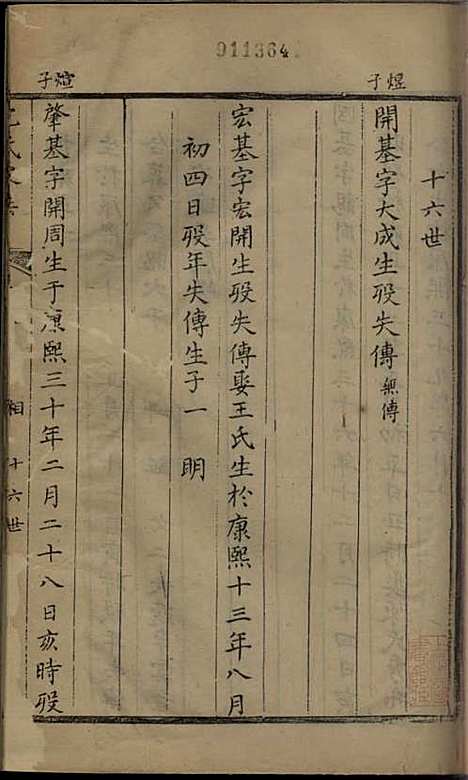 911364
十六世
煜子
開基字大成生殁失傳無傳
宏基字宏開生殁失傳娶王氏生於康熙十三年八月
初四日殁年失傳生子一 明
煊子
肇基字開周生于康熙三十年二月二十八日亥時殁
十六世